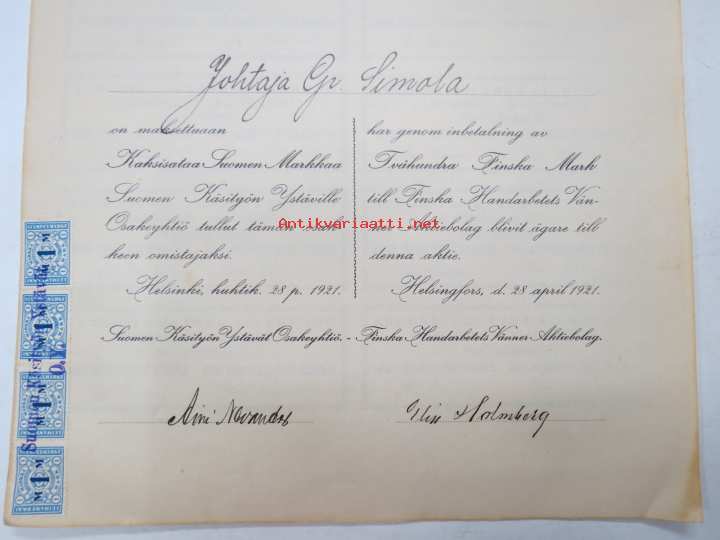 Johtaja Gr. Simola
on maksettuaan
Kaksisataa Suomen Markkaa
Suomen Käsityön Ystäville
Osakeyhtiö tullut tämän osak-
keen omistajaksi.
Helsinki, huhtik. 28 p. 1921.
har genom inbetalning av
Tvåhundra Finska Mark
till Finska Handarbetets Vän-
ner Aktiebolag blivit ägare till
denna aktie.
Helsingfors, d. 28 april 1921.
Antikvariaatti.net
Suomen Käsityön Ystävät Osakeyhtiö. - Finska Handarbetets Vänner Aktiebolag.
Aini Holmberg
1 M
M 1 M
M 1 M
M 1 M